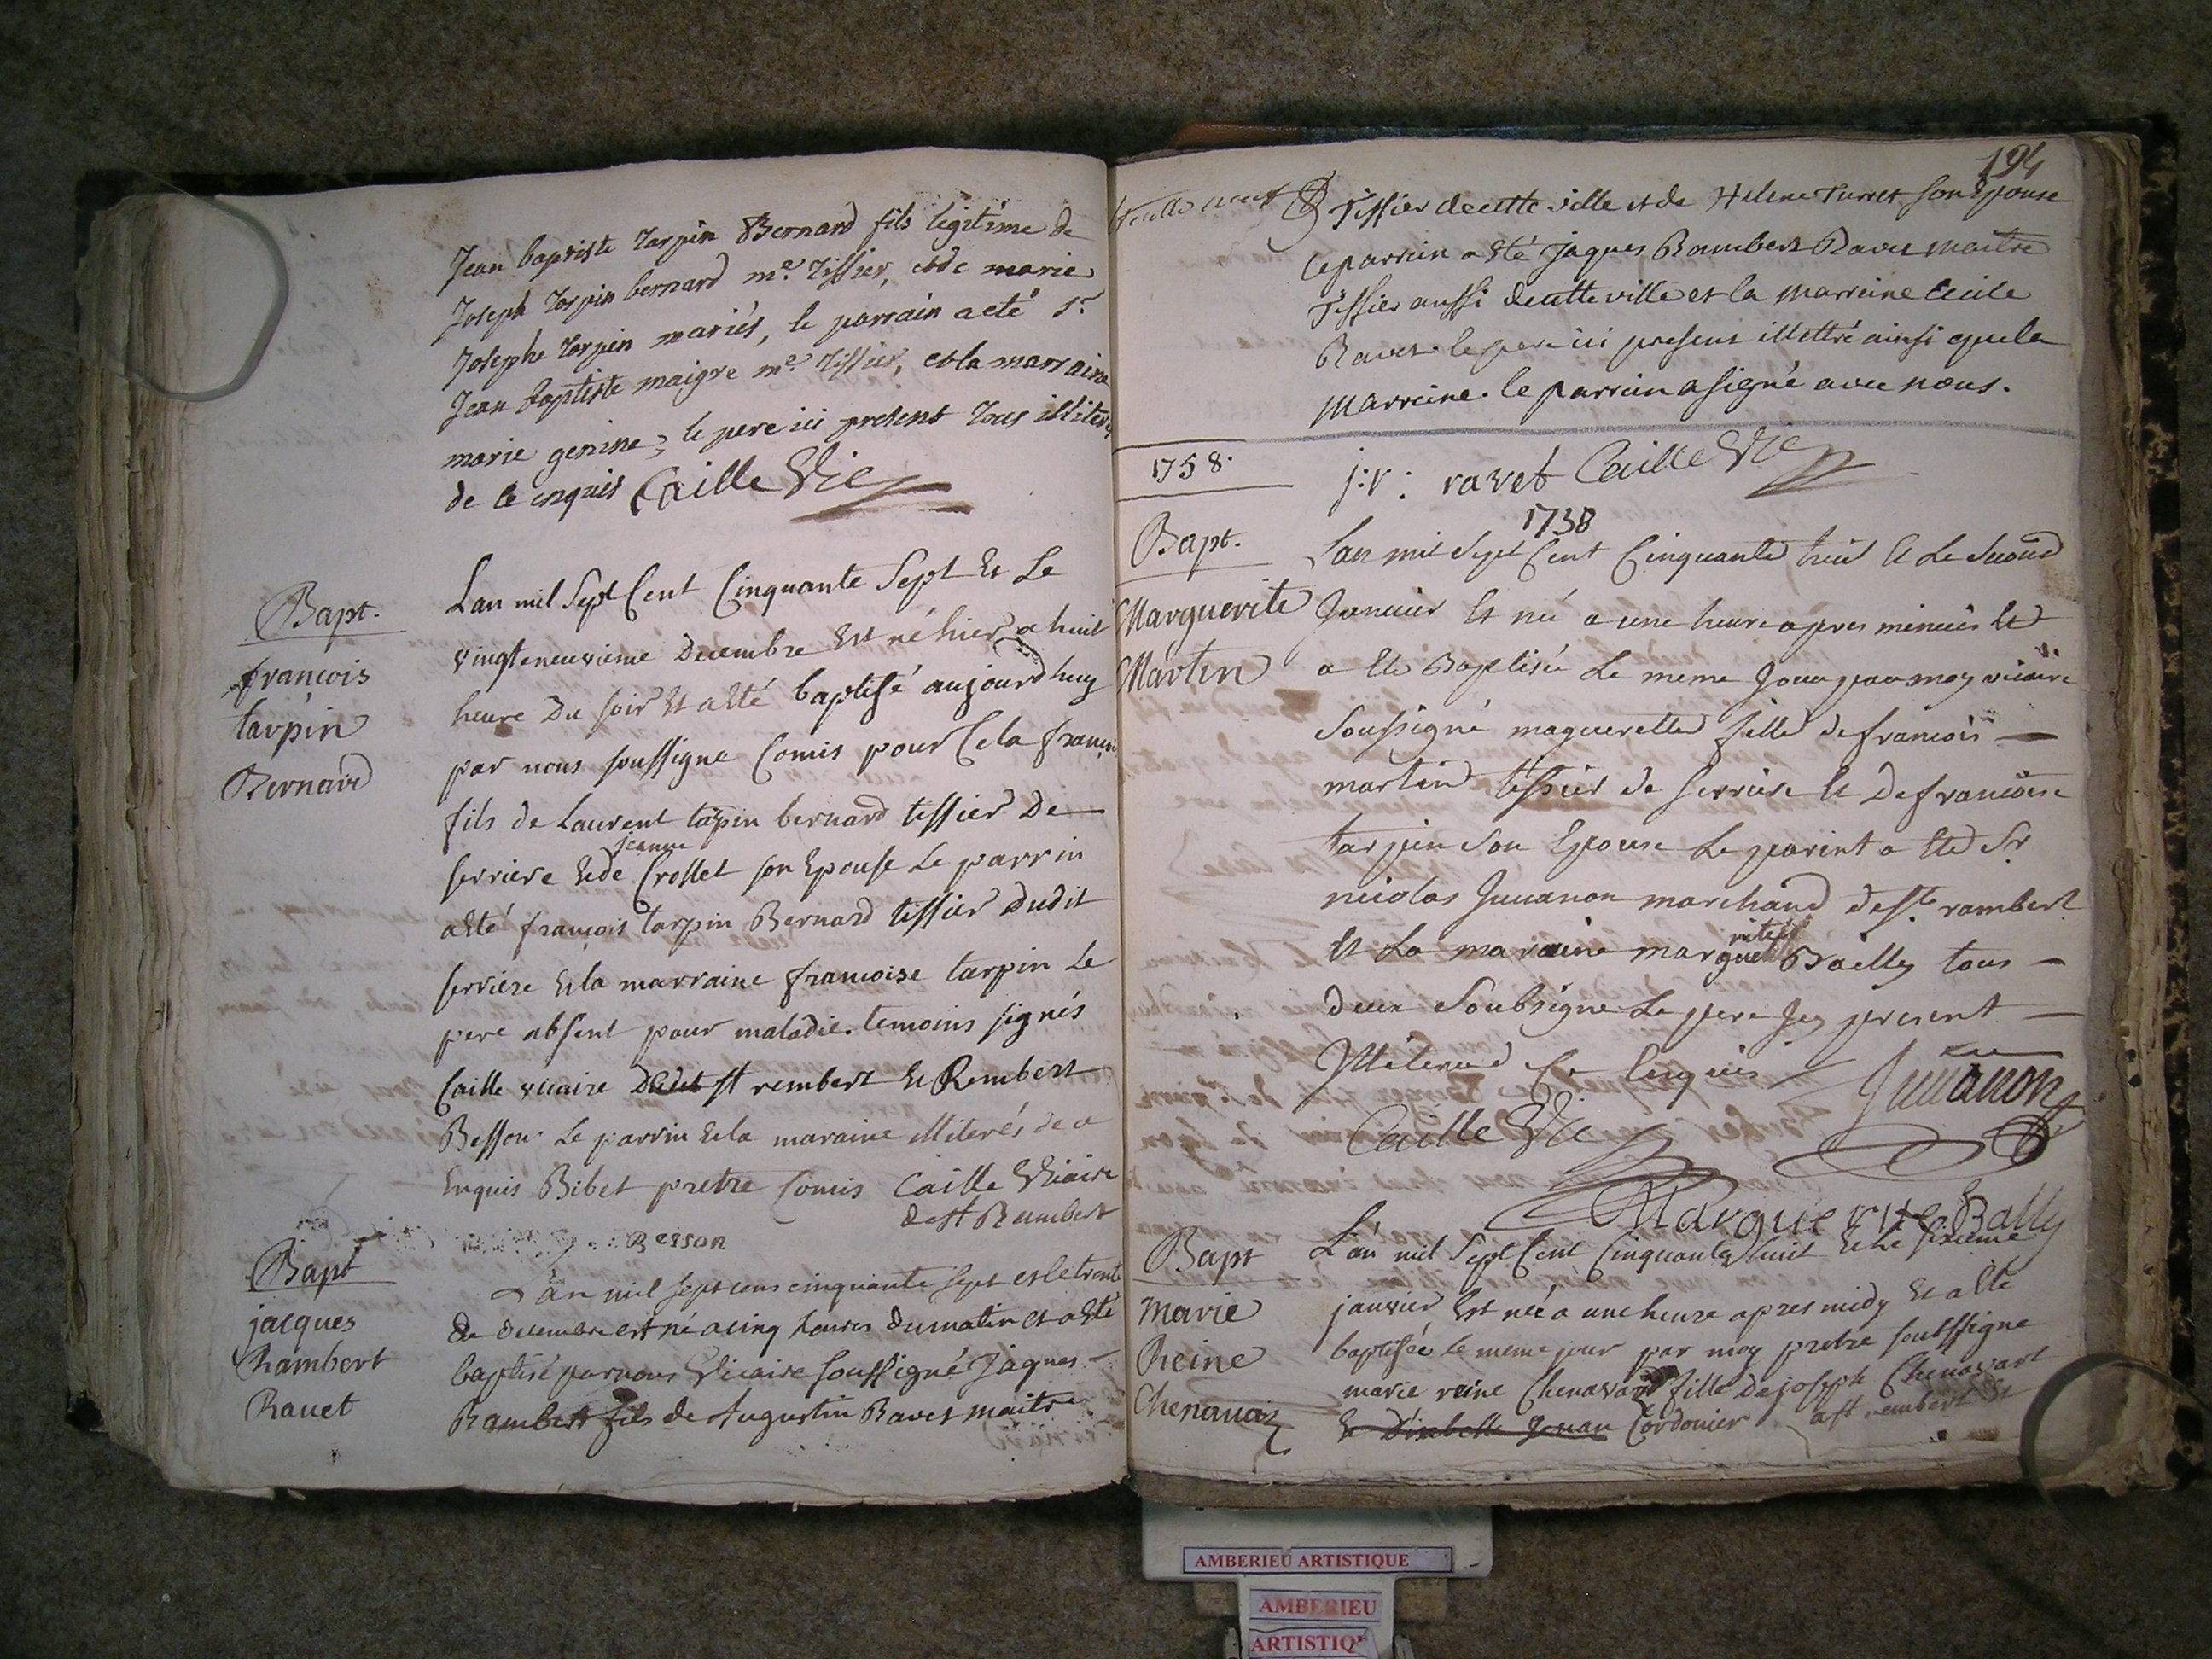 Jean baptiste Tarpin Bernard fils legitime de
Joseph Tarpin bernard me. Tissier, et de marie
Josephe Tarpin mariés, le parrain a eté sr.
Jean Baptiste maigre me. Tissier, et la marraine
marie genine; le pere ici present Tous illiterés
de ce enquis Caille Vic
Bapt.
francois
tarpin
Bernard
Lan mil Sept Cent Cinquante Sept Et Le
vingtneuvieme Decembre Est né hier a huit
heure Du soir Et a Eté baptisé aujourd huy
par nous soussigne Comis pour Cela francois
fils de Laurent tarpin bernard tessier De
serriere Et de jeanne Crollet son Epouse Le parrin
a Eté françois tarpin Bernard tissier dudit
serriere Et la marraine francoise tarpin Le
pere absent pour maladie. temoins signés
Caille vicaire St rembert Et Rembert
Besson. Le parrin Et la maraine illiterés de a
Enquis Bibet pretre Comis Caille Vicaire
de st Rambert
Besson
Bapt
jacques
Rambert
Rauet
L'an mil sept cens cinquante sept et le trente
de decembre est né a cinq heures du matin et a Eté
baptisé par nous Vicaire soussigné Jaques
Rambert fils de Augustin Ravet maitre
194
Tissier de cette ville et de Helene Turret son Epouse
le parrain a Eté Jaques Rambert Ravet maitre
Tissier aussi de cette ville et la marreine Cecile
Ravet le pere ici present illettré ainsi que la
marreine. le parrain a signé avec nous.
1758.
j: r: ravet Caille Vic
1738
Bapt.
Marguerite
Martin
Lan mil Sept Cent Cinquante huit Et Le Second
Janvier Et née a une heure apres minuis Et
a Ete Baptisée Le meme Jour par moy vicaire
Soussigné maguerette fille de francois
martin tissier de serriere Et De francoise
tarpin Son Epouse Le parint a Ete Sr
nicolas Juuanon marchand de st rambert
Et La maraine marguerite Bailly tous
deux Soubsigne Le pere Jcy present
Jlliteré de Ce Enquis Juuanon
Caille Vic
Marguerite Bally
Bapt
Marie
Reine
Chenauaz
L'an mil Sept Cent Cinquante huit Et le sixieme
janvier Est née a une heure apres midy Et a Eté
baptisée le meme jour par moy pretre soussigne
marie reine Chenavard fille de joseph Chenavart
Cordonier a st rembert Et
AMBERIEU ARTISTIQUE
AMBERIEU
ARTISTIQ